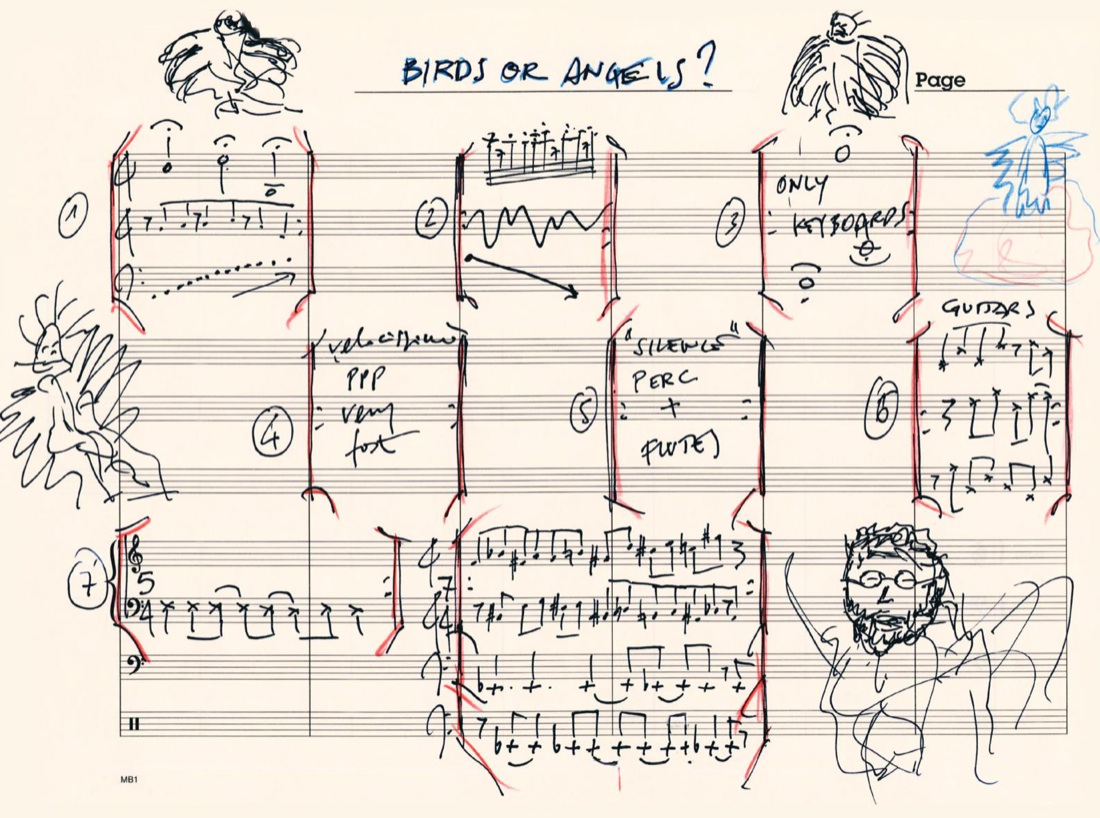 BIRDS OR ANGELS?
Page
1
2
3
ONLY
KEYBOARDS
4
velocissimo
PPP
very
fast
5
"SILENCE"
PERC
+
FLUTES
GUITARS
6
7
5
4
MB1